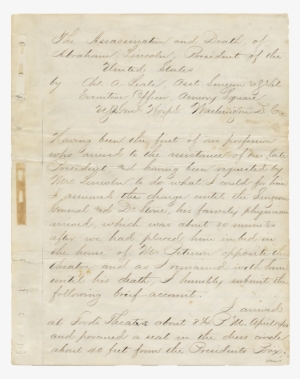 The Assassination and Death of
Abraham Lincoln, President of the
United States
by Chs. A. Leale, Asst Surgeon
Executive Officer Armory Square
U.S. Gen. Hospl Washington D.C.
Having been the first of our profession
who arrived to the assistance of our late
President, and having been requested by
Mrs Lincoln to do what I could for him
I assumed the charge until the Surgeon
General and Dr Stone, his family physician
arrived, which was about 20 minutes
after we had placed him in bed in
the house of Mr Peterson opposite the
theatre, and as I remained with him
until his death, I humbly submit the
following brief account.
I arrived
at Fords Theatre about 8¼ P.M. April
and procured a seat in the dress circle
about 40 feet from the Presidents Box.